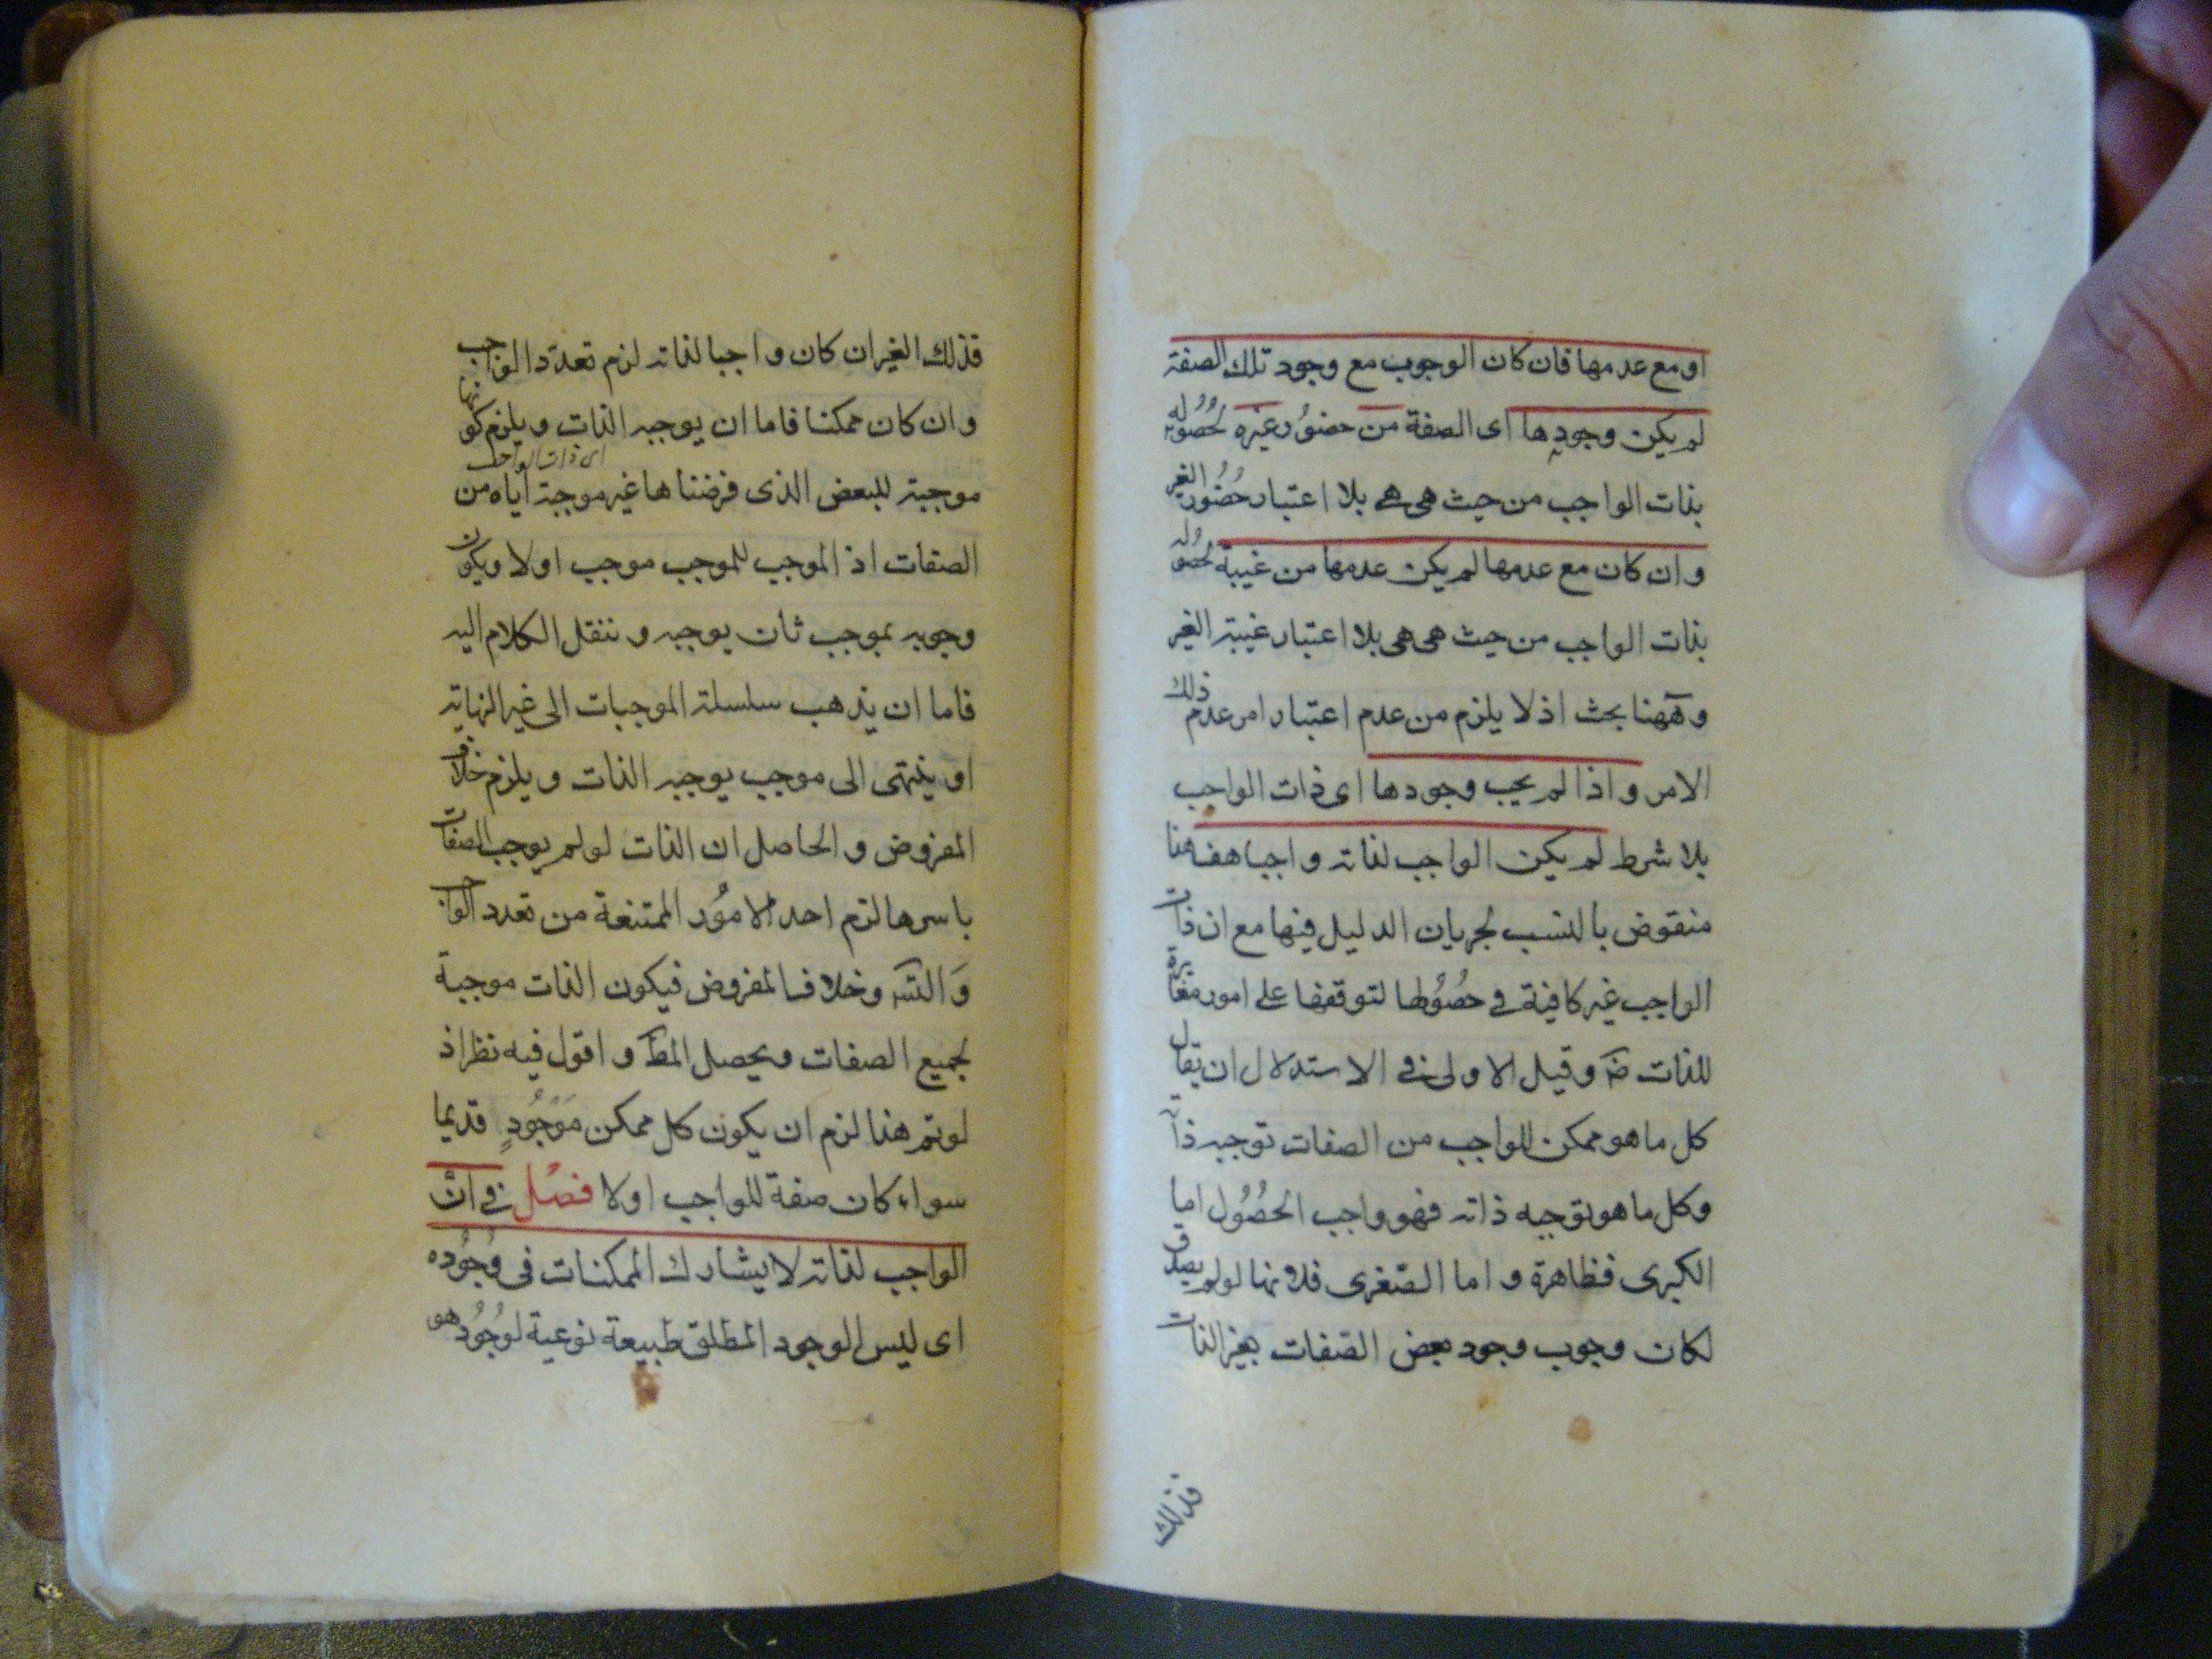 او مع عدمها فان كان الوجوب مع وجود تلك الصفة
لم يكن وجودها اى الصفة من حضور غيره لحصوله
بذات الواجب من حيث هى هى بلا اعتبار حضور الغير
وان كان مع عدمها لم يكن عدمها من غيبة لحصوله
بذات الواجب من حيث هى هى بلا اعتبار غيبة الغير
وههنا بحث اذ لا يلزم من عدم اعتبار امر عدم ذلك
الامر واذا لم يجب وجودها اى ذات الواجب
بلا شرط لم يكن الواجب لذاته واجبا هف هذا
منقوض بالنسب لجريان الدليل فيها مع ان ذات
الواجب غير كافية فى حصولها لتوقفها على امور مغايرة
للذات ضر وقيل الاولى فى الاستدلال ان يقال
كل ما هو ممكن للواجب من الصفات توجبه ذاته
وكل ما هو توجبه ذاته فهو واجب الحصول اما
الكبرى فظاهرة واما الصغرى فلانها لو لم يصدق
لكان وجوب وجود بعض الصفات بغير الذات
فذلك
فذلك الغير ان كان واجبا لذاته لزم تعدد الواجب
وان كان ممكنا فاما ان يوجبه الذات ويلزم كونها
اى ذات الواجب
موجبة للبعض الذى فرضناها غير موجبة اياه من
الصفات اذ الموجب للموجب موجب اولا ويكون
وجوبه بموجب ثان يوجبه وننقل الكلام اليه
فاما ان يذهب سلسلة الموجبات الى غير النهاية
او ينتهى الى موجب يوجبه الذات ويلزم خلاف
المفروض والحاصل ان الذات لو لم يوجب الصفات
باسرها لزم احد الامور الممتنعة من تعدد الواجب
والتسـ وخلاف المفروض فيكون الذات موجبة
لجميع الصفات ويحصل المط واقول فيه نظر اذ
لو تم هذا لزم ان يكون كل ممكن موجود قديما
سواء كان صفة للواجب اولا فصل فى ان
الواجب لذاته لا يشارك الممكنات فى وجوده
اى ليس الوجود المطلق طبيعة نوعية لوجود هو